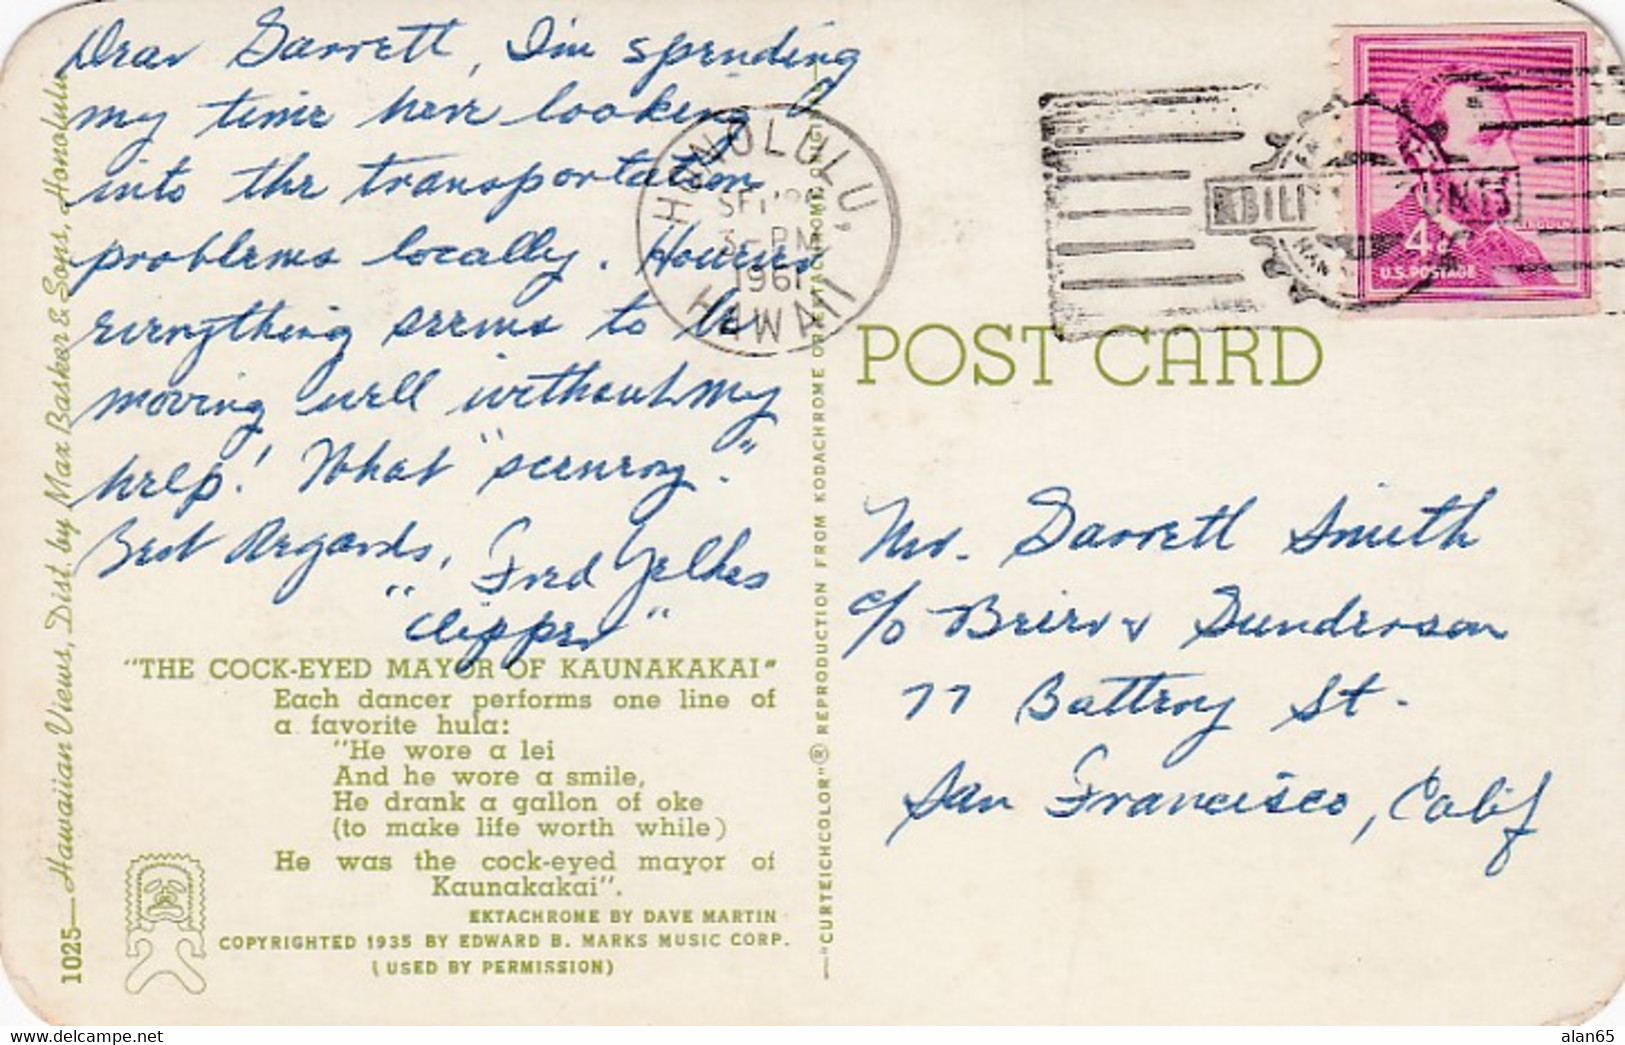 Dear Garrett, I'm spending
my time here looking
into the transportation
problems locally. However
everything seems to be
moving well without my
help! What "scenery."
Best Regards,
Fred Jelkes
"Clipper"
"THE COCK-EYED MAYOR OF KAUNAKAKAI"
Each dancer performs one line of
a favorite hula:
"He wore a lei
And he wore a smile,
He drank a gallon of oke
(to make life worth while)
He was the cock-eyed mayor of
Kaunakakai".
EKTACHROME BY DAVE MARTIN
COPYRIGHTED 1935 BY EDWARD B. MARKS MUSIC CORP.
(USED BY PERMISSION)
1025—Hawaiian Views, Dist. by Max Basker & Sons, Honolulu
—"CURTEICHCOLOR"® REPRODUCTION FROM KODACHROME OR EKTACHROME ORIGINAL—
HONOLULU,
SEP
3 - PM
1961
HAWAII
4¢
LINCOLN
U.S. POSTAGE
POST CARD
Mr. Garrett Smith
c/o Breier & Gunderson
77 Battery St.
San Francisco, Calif
alan65